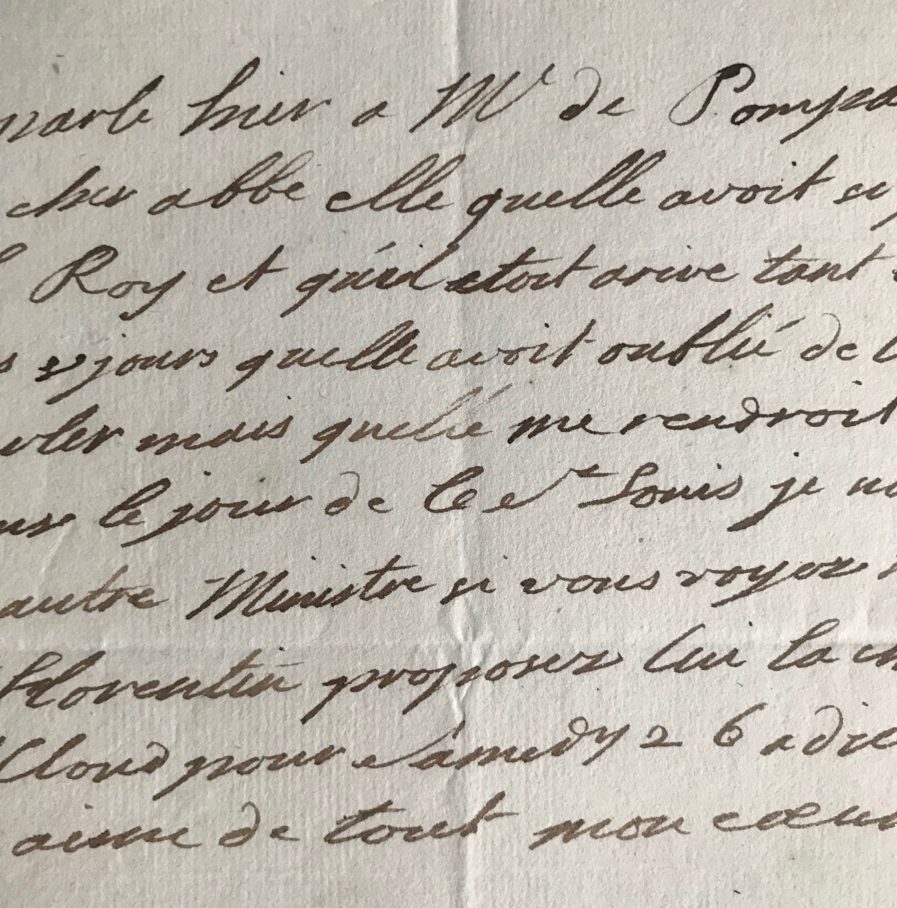 parle hier a Mr de Pompa
cher abbe elle quelle avoit
Roy et quil etoit arive tant
jours quelle avoit oublié de
mais quelle me rendroit
le jour de le St Louis je
autre Ministre si vous voyez
florentin proposez lui la
Cloud pour Samedy 26 adie
aime de tout mon cœur